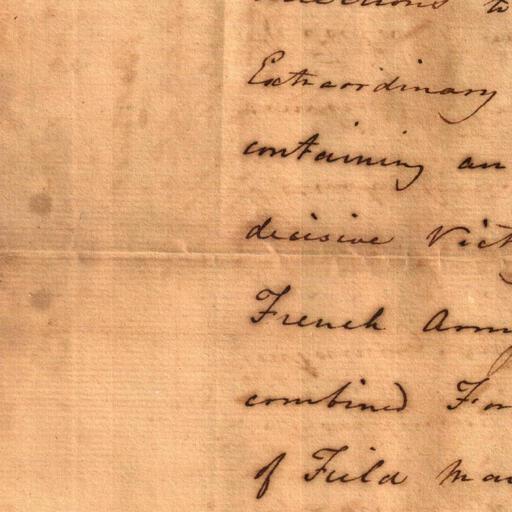 to
Extraordinary
containing an
decisive Vict
French Arm
combined For
of Field Mar